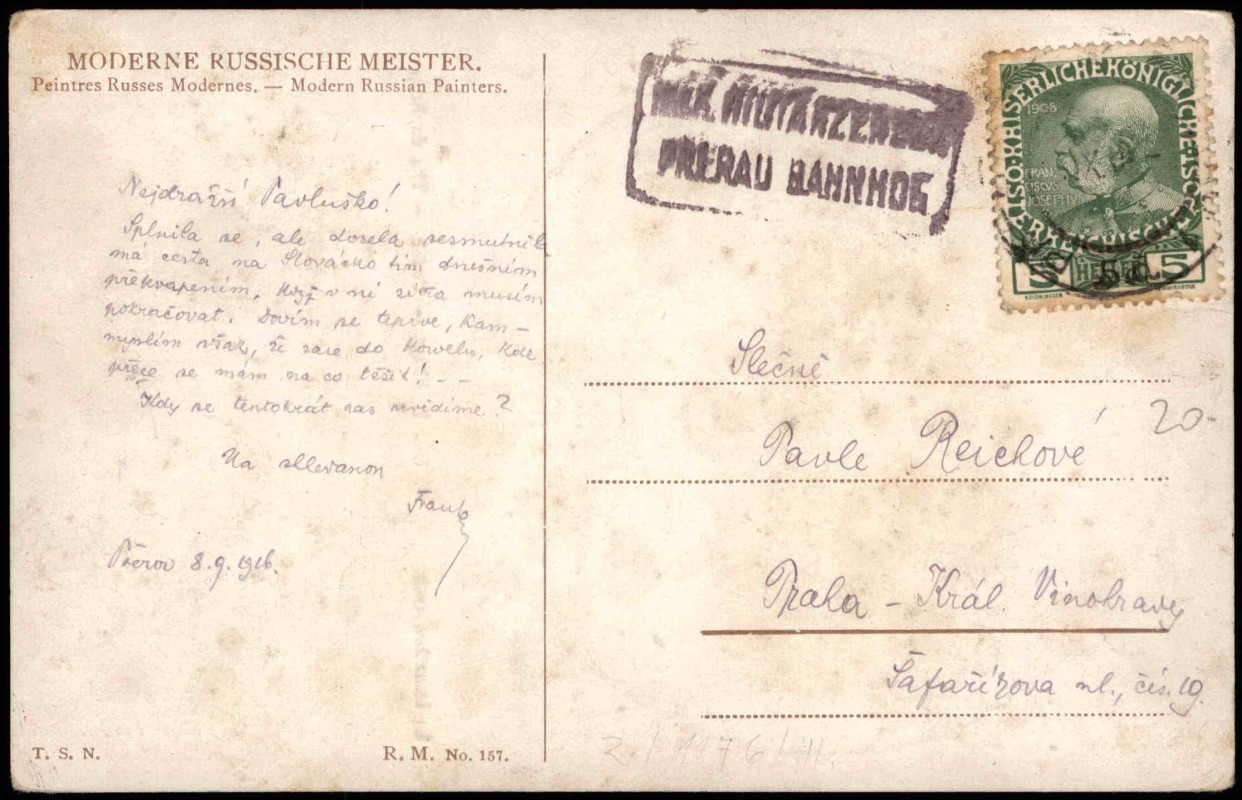 MODERNE RUSSISCHE MEISTER.
Peintres Russes Modernes. — Modern Russian Painters.
Nejdražší Pavluško!
Splnila se, ale docela zesmutnila
má cesta na Slovácko tím dnešním
překvapením, když v ní zítra musím
pokračovat. Dovím se teprve, kam –
myslím však, že zase do Kowelu, kde
přece se mám na co těšit! – –
Kdy se tentokrát zas uvidíme?
Na shledanou
Přerov 8.9.1916.
T. S. N.
R. M. No. 157.
K.u.K. MILITÄRZENSUR
PRERAU BAHNHOF
KAISERLICHEKÖNIGLICHE
ÖSTERREICHISCHE
1908
FRAN
CISCVS
JOSEPHVS
5 HELLER 5
Slečně
Pavle Reichové
20-
Praha – Král. Vinohrady
Šafaříkova ul., čís. 19.